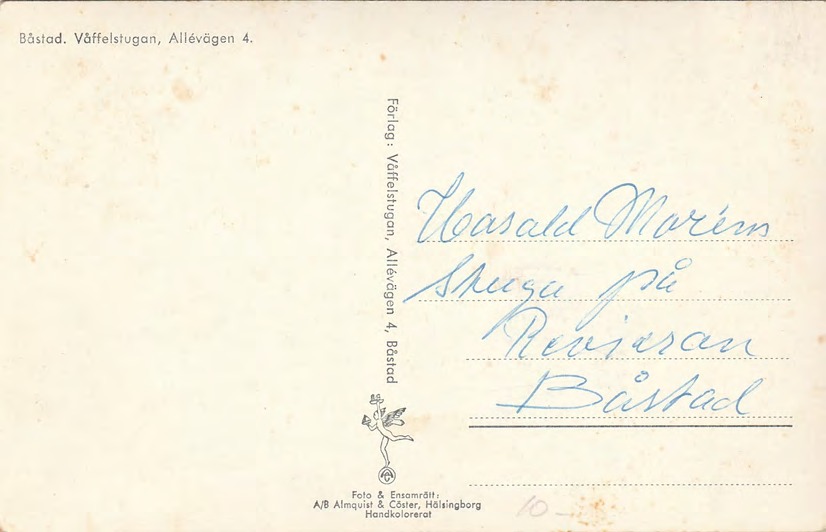 Båstad. Våffelstugan, Allévägen 4.
Förlag: Våffelstugan, Allévägen 4, Båstad
Harald Moréns
Stuga på
Revieran
Båstad
Foto & Ensamrätt:
A/B Almquist & Cöster, Hälsingborg
Handkolorerat
10-